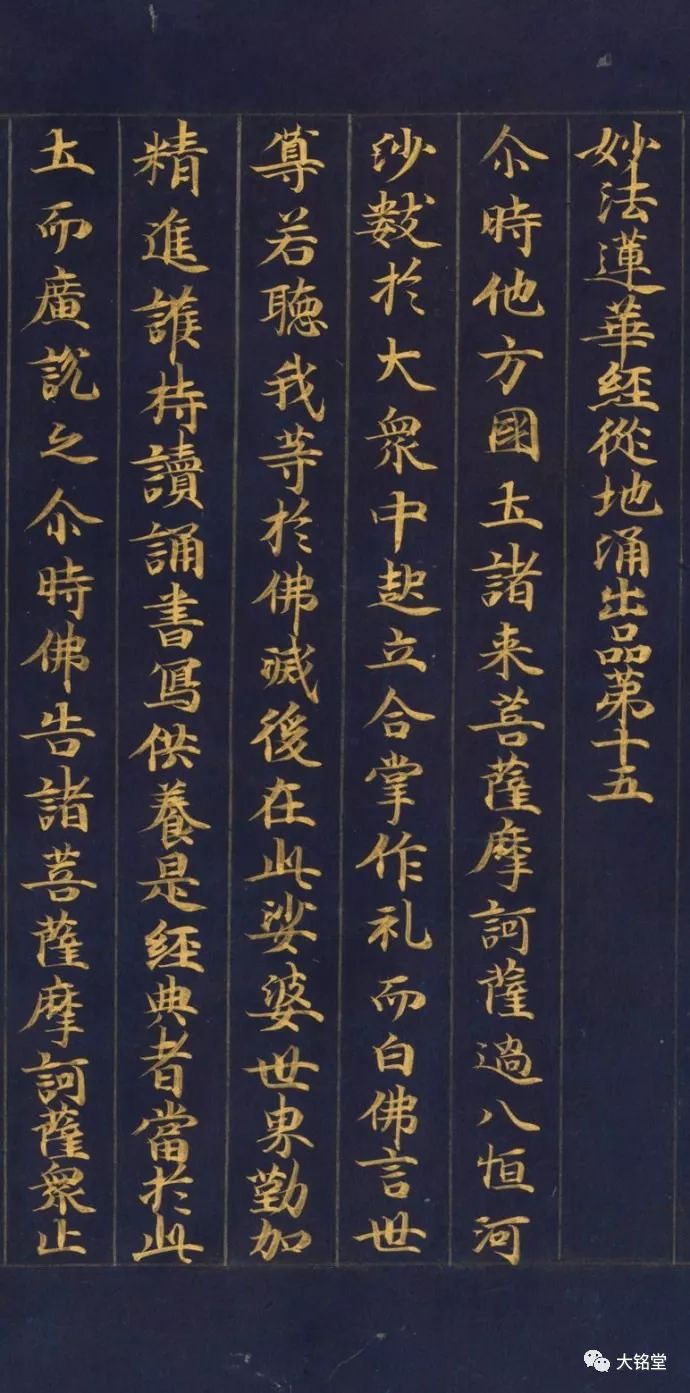 妙法蓮華經從地涌出品第十五
尒時他方國土諸来菩薩摩訶薩過八恒河
沙數於大衆中起立合掌作礼而白佛言世
尊若聽我等於佛滅後在此娑婆世界勤加
精進護持讀誦書寫供養是經典者當於此
土而廣說之尒時佛告諸菩薩摩訶薩衆止
大铭堂